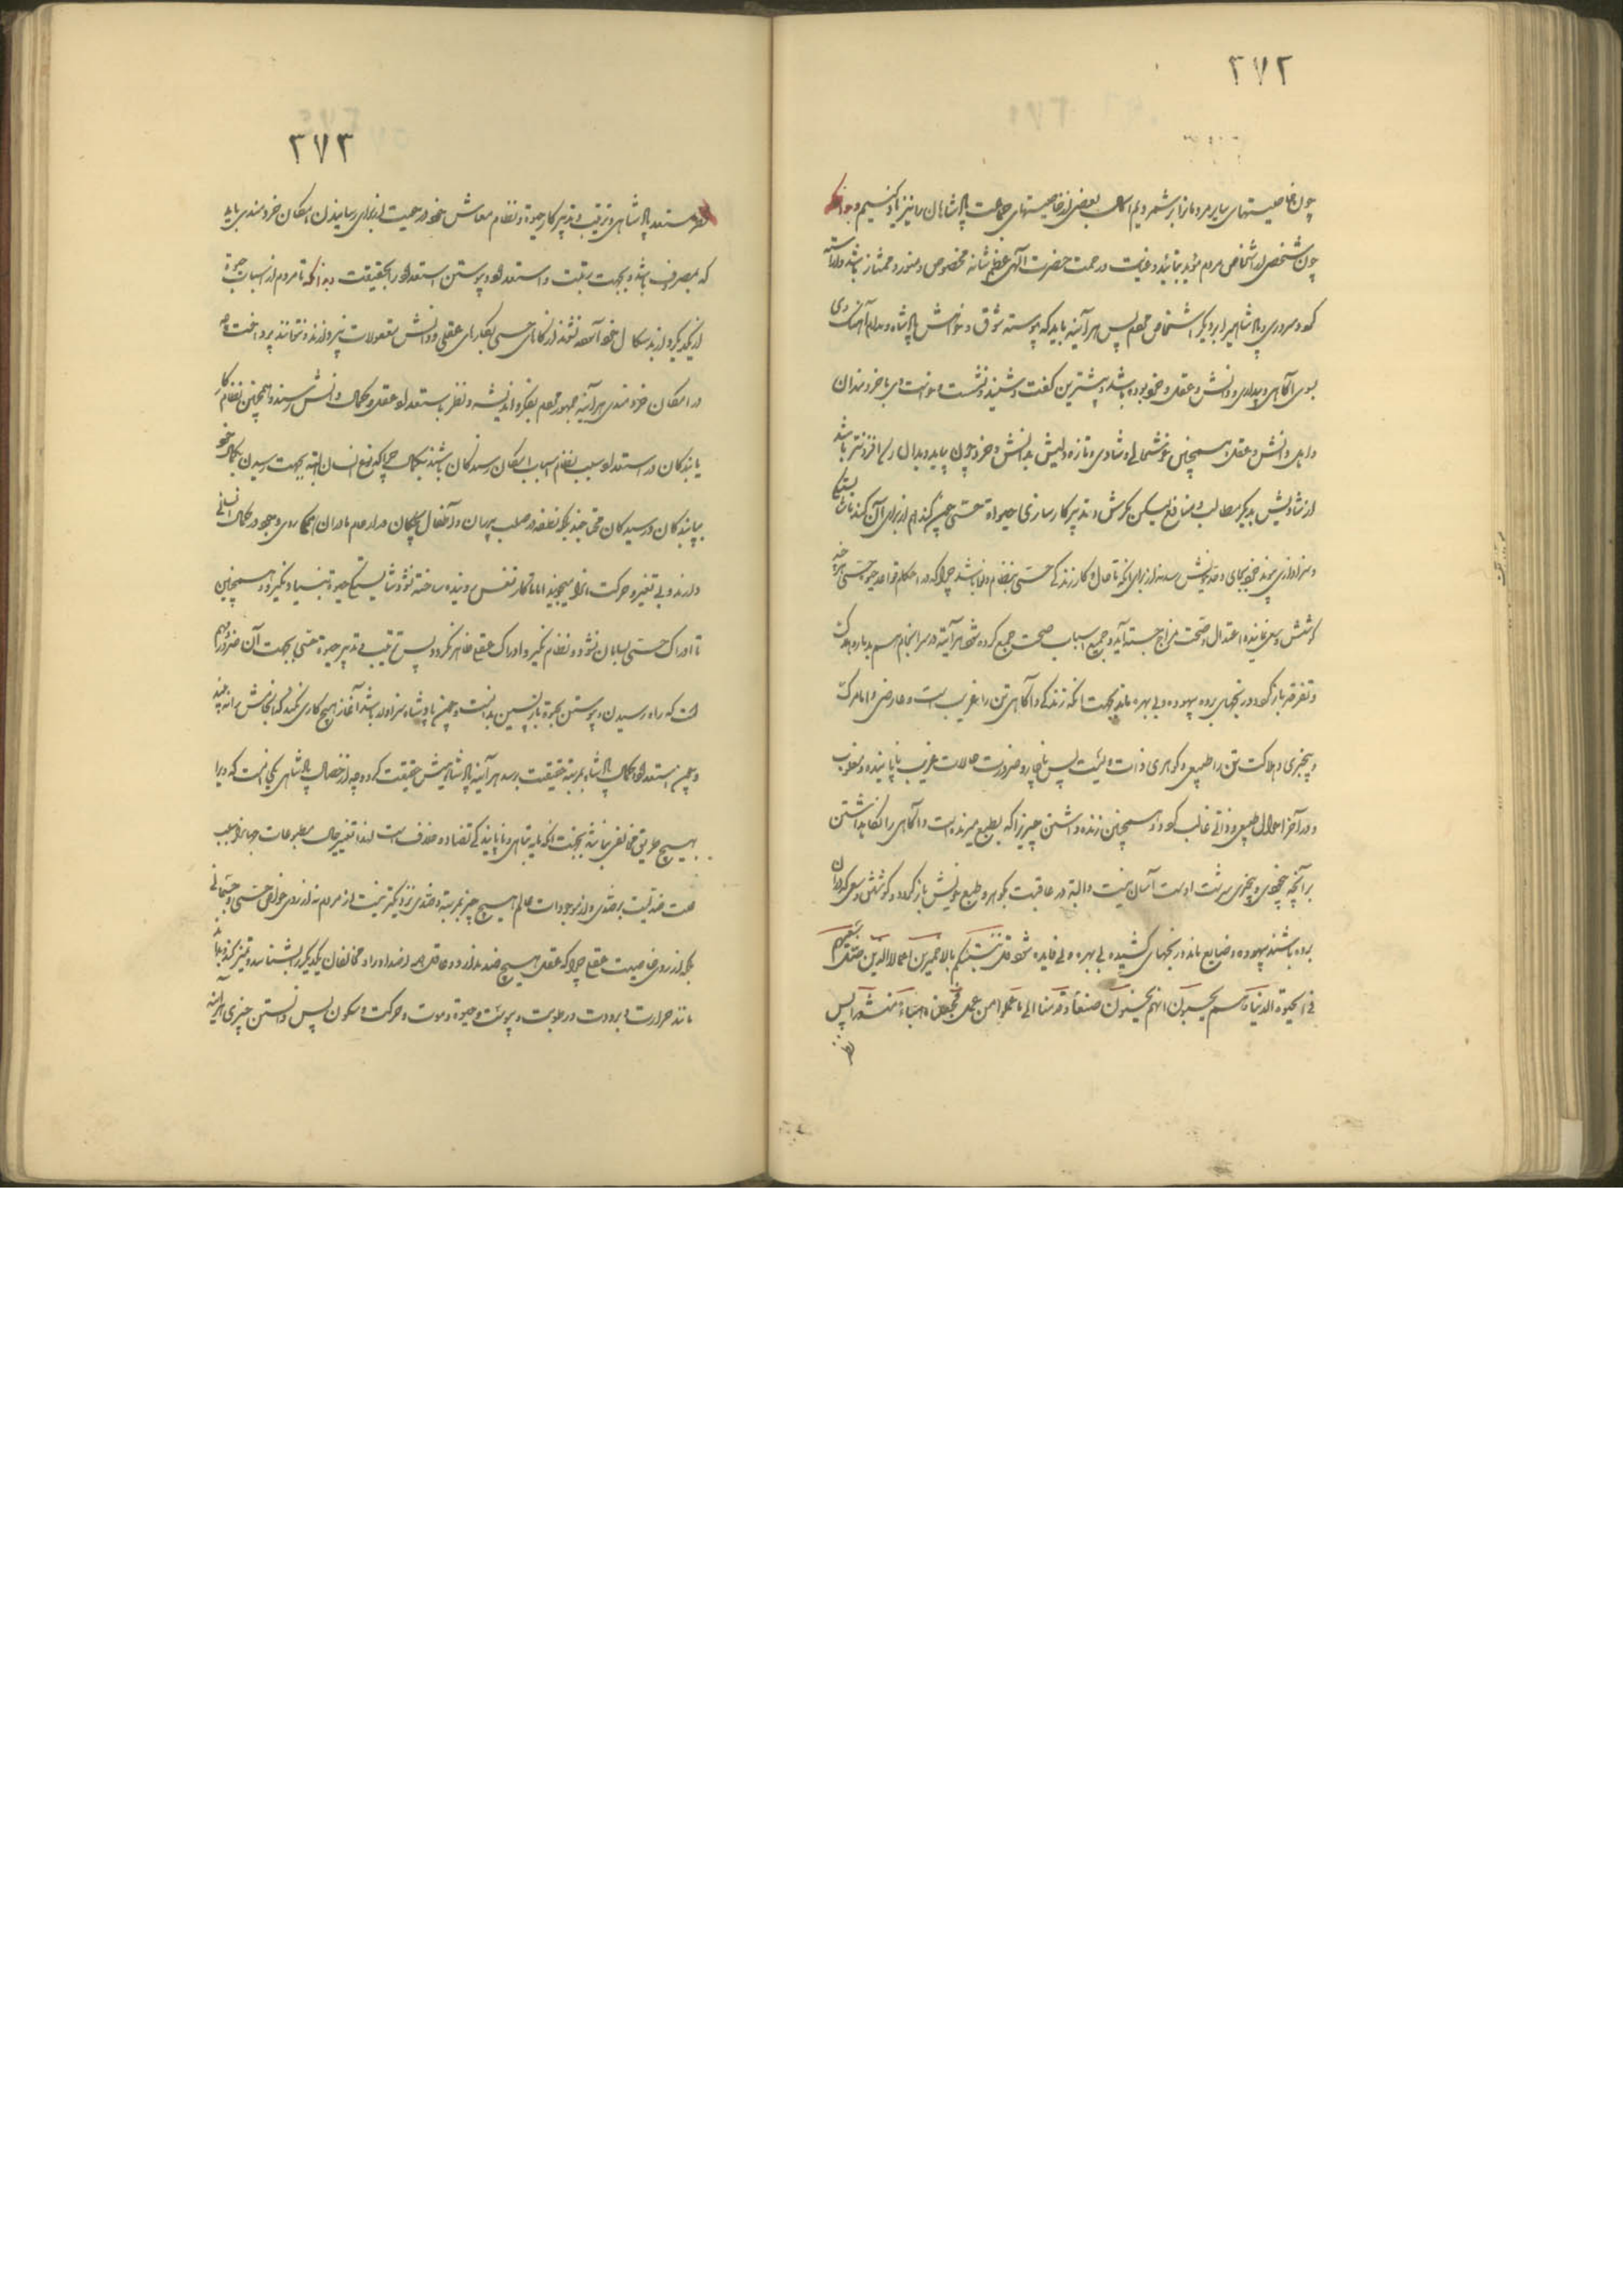 ٢٧٢
چون خاصیتهای سایر مردمانرا بر شمردیم اکنون بعضی از خاصیتهای جماعت پادشاهان را نیز یاد کنیم و بدانکه
چون شخصی از اشخاص مردم مؤید بتأیید و عنایت و رحمت حضرت الٓهی عظم شانه مخصوص و منور و ممتاز باشد و آراسته
کردد و سروری و پادشاهیرا بر دیکر اشخاص مردم پس هر آینه باید که پیوسته شوق و خواهش پادشاه و مدام آهنک وی
بسوی آگاهی و بیداری و دانش و عقل و خرد بوده باشد و بیشترین کفت و شنید و نشست و خواست وی با خردمندان
و اهل دانش و عقل و همچنین خوشحالی و شادی و تازه دلیش بدانش و خرد چون بیابد و بدان رسد افزونتر باشد
از شادیش بدیکر مطالب و منافع لیکن کوشش و تدبیر کارسازی حیوة حسّی چون کند هم از برای آن کند تا شایستکی
و سزاواری پیوند خرد بجای و حد خویش رسد از برای آنکه تا حال و کار زندکی حسّی بنظام و فا نباشد چرا که در احکام قواعد حیوة حسّی هر چه
کوشش و سعی نماینده اعتدال و صحت مزاج جسته آید و جمیع اسباب صحت جمع کرده شود هر آینه در سرانجام هم بدمار و هلاکت
و تفرقه باز کردد و رنجهای برده بیهوده و بی بهره ماند بجهت آنکه زندکی و آگاهی تن را غریب است و عارضی و اما مرک
و بیخبری و هلاکت تن را طبیعی و کوهری و ذات و لیت پس ناچار و ضرورت حالات غریب ناپاینده و مغلوب
و در آخر احوال طبیعی و ذاتی غالب کردد و همچنین زنده داشتن چیزیرا که بطبع میرنده است و آگاهی را نکاهداشتن
بر آنچه بیخودی و بیخبری سرشت اوست آسان نیست و البته در عاقبت بکوهر و طبع خویش باز کردد و کوشش و سعی که در آن
برده باشند بیهوده و ضایع ماند و رنجهای کشیده بی بهره و بی فایده شود قل ننبئکم بالاخسرین اعمالا الذین ضل سعیهم
فی الحیوة الدنیا و هم یحسبون انهم یحسنون صنعاً و قدمنا الی ما عملوا من عمل فجعلناه هباء منثورا پس
٢٧٣
مستعد پادشاهی و ترتیب و تدبیر کار حیوة و نظام معاش خود و رعیت از برای رسانیدن امکان خردمندی باید
که مصروف باشد و بجهت تثبت و استعداد و پیوستن استعداد را بحقیقت و بدانکه تا مردم از اسباب حیوة
از یکدیکر و از بد سکال خود آسوده نشوند از کارهای حسی بکارهای عقلی و دانش معقولات نپردازند و نتوانند پرداخت
در امکان خردمندی هر آینه جمهور مردم بفکر و اندیشه و نظر باستعداد عقل و کمال دانش رسند و همچنین نظام کار
یابندکان در استعداد و سبب نظام اسباب امکان رسیدکان باشند بکمال چراکه نوع انسان البته بجهت رسیدن بکمال خود
بیابندکان و رسیدکان محتاجند چنانکه نطفه در صلب پدران و اطفال و بچکان در ارحام مادران اکرچه روی و توجه در کمال انسانی
دارند و بی تغییر و حرکت نیند اما تا کار تنفس رونده ساخته نشود شایستکی حیوة بنیاد نکیرد و همچنین
تا ادراک حسّی بسامان نشود و نظام نکیرد ادراک عقلی ظاهر نکردد پس ترتیب و تدبیر حیوة حسّی بجهت آن ضرور و مهم
است که راه رسیدن و پیوستن بحیوة بازپسین بدانست و چون پادشاه سزاوار باشد آغاز هیچ کاری نکند که انجامش را نه بیند
و چون استعداد و کمال پادشاه بمرتبه حقیقت رسد هر آینه پادشاه بیش حقیقت کردد و چه از خصال پادشاهی یکی آنست که ویرا
بهیچ طریق مخالفی نباشد بجهت آنکه مایه تباهی و ناپایندکی تضاد و خلاف است لهذا تغییر حال مطبوعات جهانرا سبب
است ضدیت بر ضدی و از موجودات عالم هیچ چیز بمرتبه و ضدی نزدیکتر نیست از مردم نه از روی خواص حسّی و جسمانی
بلکه از روی خاصیت عقلی چرا که عقل هیچ ضد ندارد و عاقل همه اضداد را و مخالفان یکدیکر را بشناسد و تمیز کند
مانند حرارت و برودت و رطوبت و یبوست و حیوة و موت و حرکت و سکون پس دانستن چیزی هر آینه